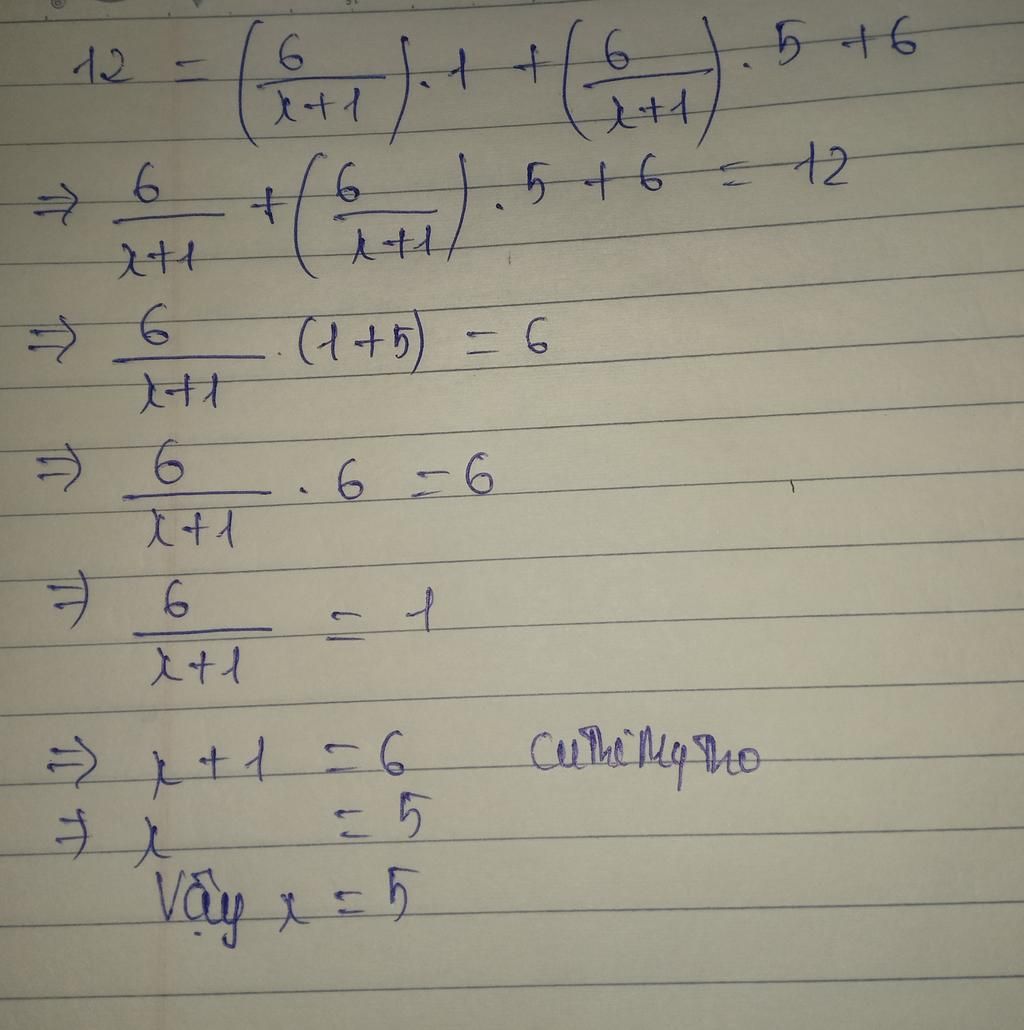 12 = (6/(x+1)) . 1 + (6/(x+1)) . 5 + 6
⇒ 6/(x+1) + (6/(x+1)) . 5 + 6 = 12
⇒ 6/(x+1) . (1+5) = 6
⇒ 6/(x+1) . 6 = 6
⇒ 6/(x+1) = 1
⇒ x+1 = 6 CuThiMyTho
⇒ x = 5
Vậy x = 5